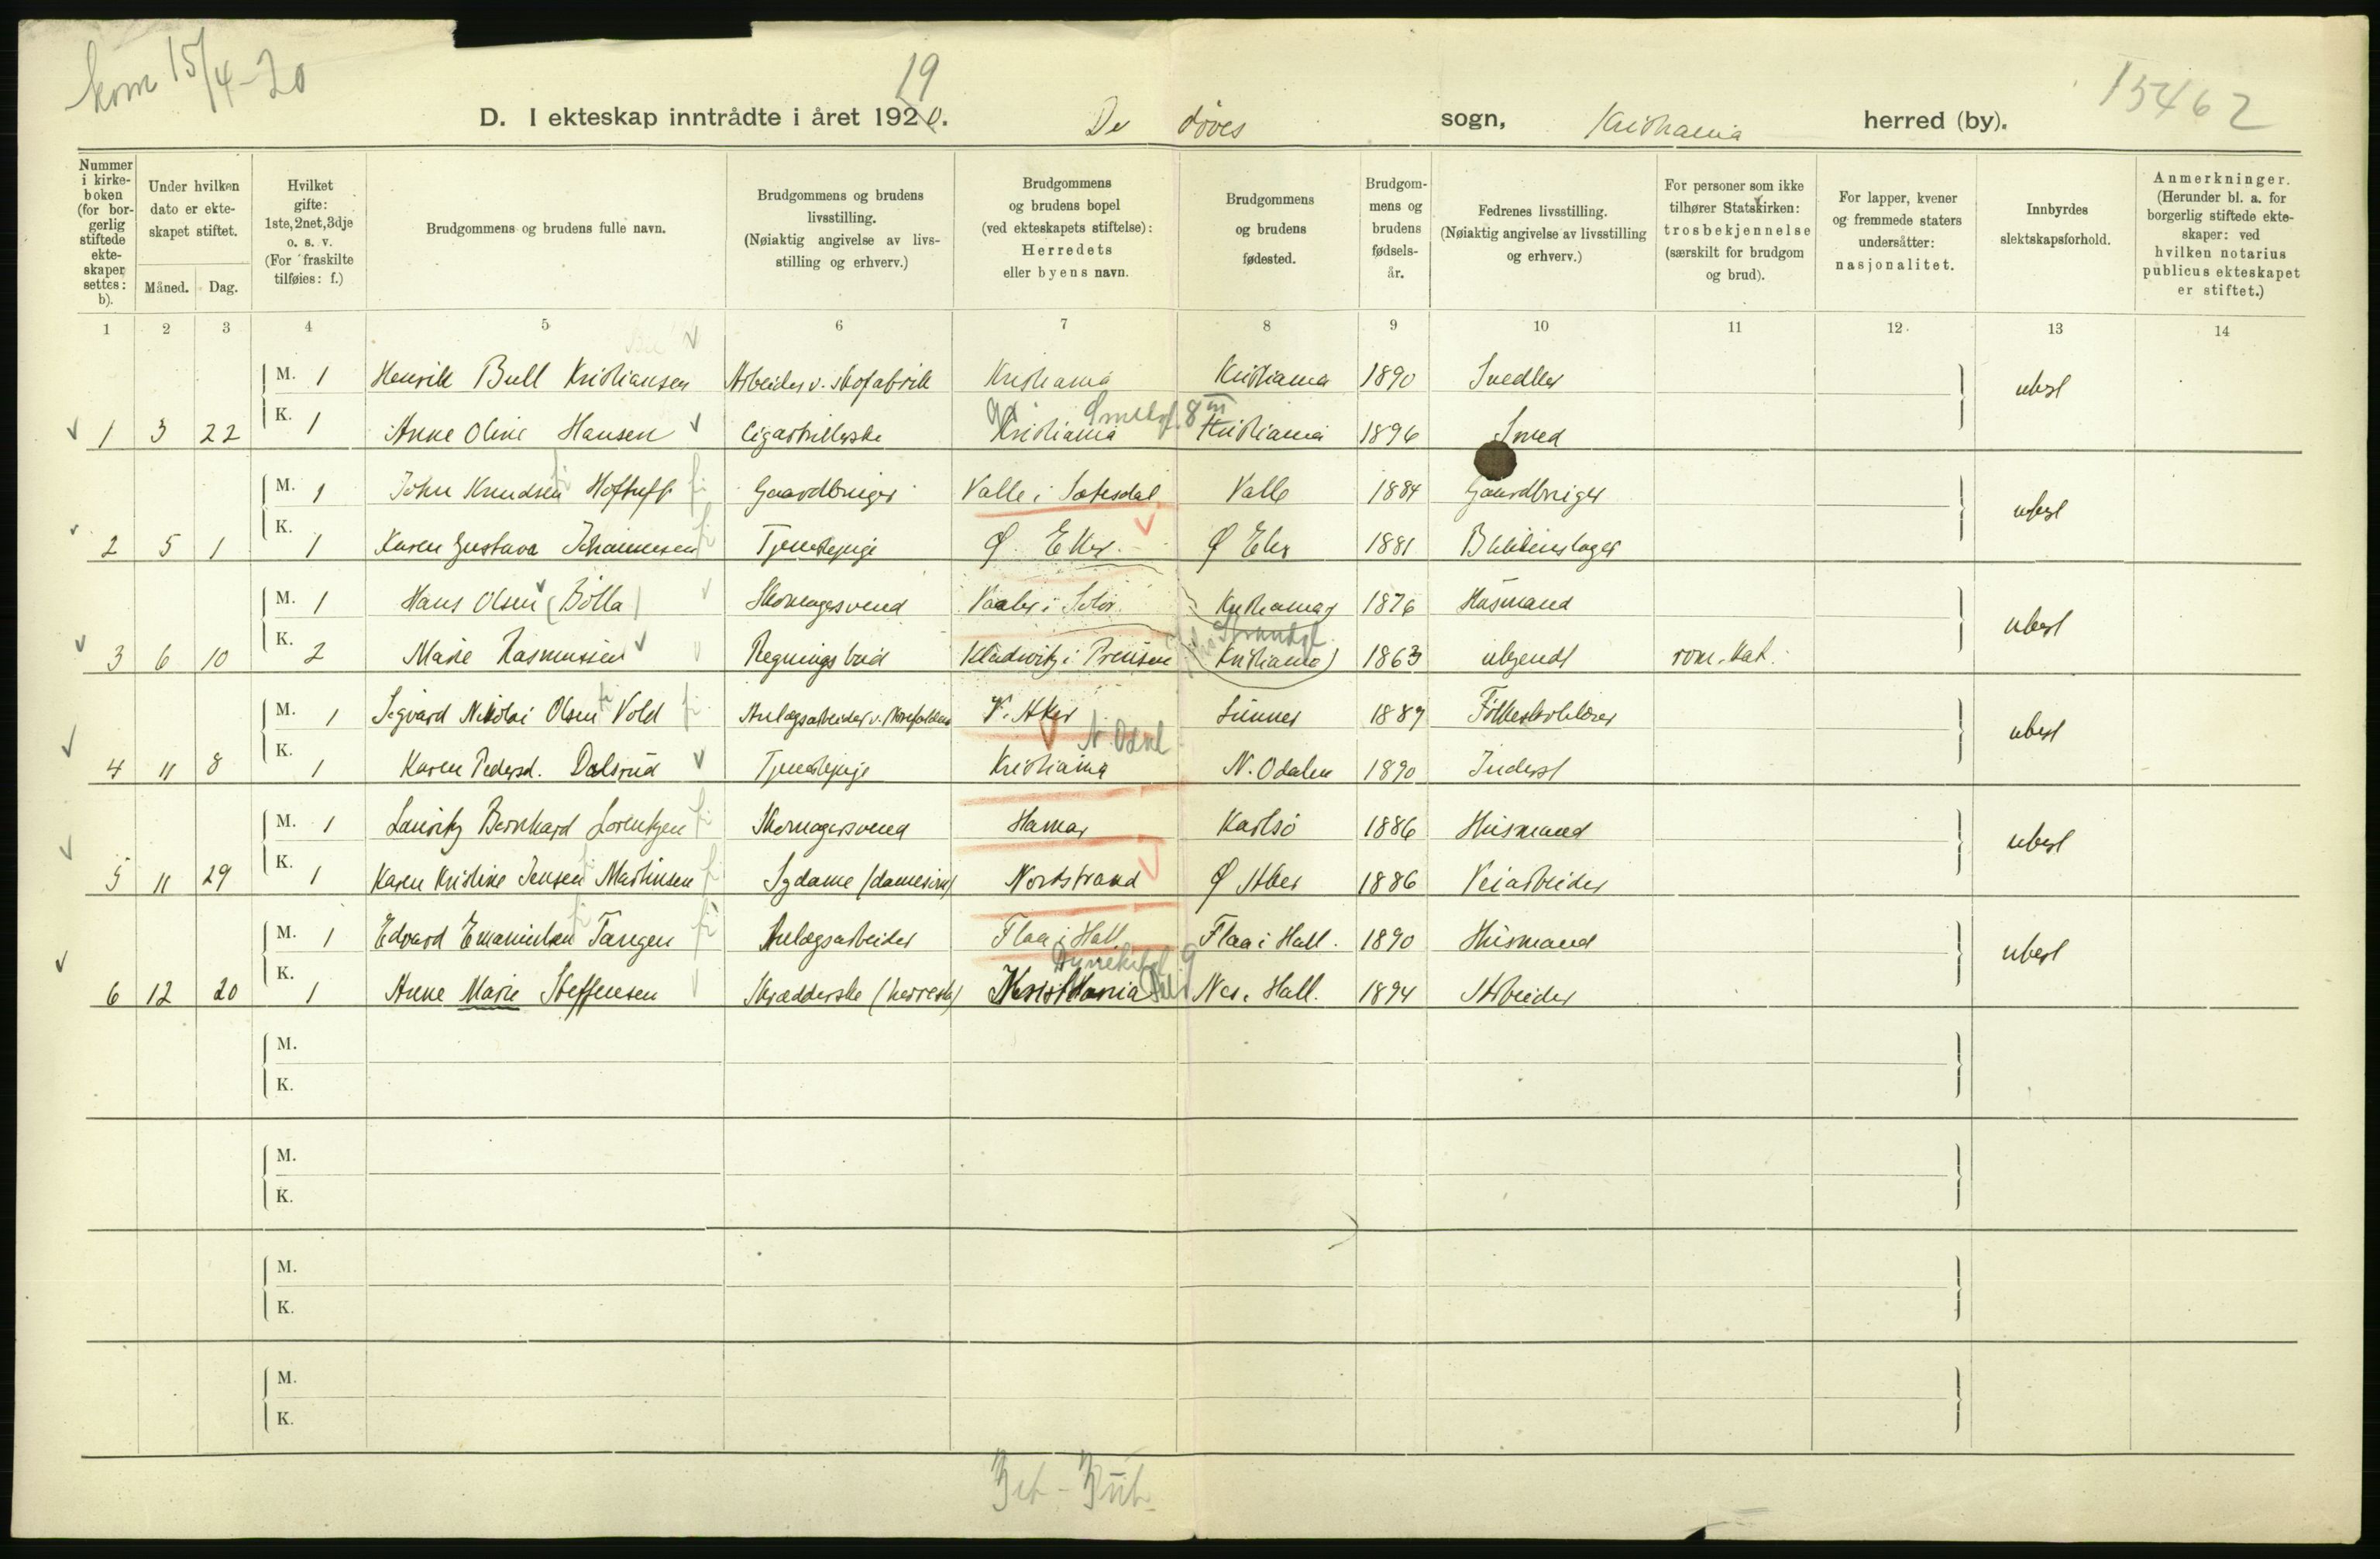 kom 15/4-20
15462
19
D. I ekteskap inntrådte i året 1920. De døves sogn, Kristiania herred (by).
Nummer i kirkeboken (for borgerlig stiftede ekteskaper settes: b).
Under hvilken dato er ekteskapet stiftet.
Måned. Dag.
Hvilket gifte: 1ste, 2net, 3dje o. s. v. (For fraskilte tilføies: f.)
Brudgommens og brudens fulle navn.
Brudgommens og brudens livsstilling. (Nøiaktig angivelse av livsstilling og erhverv.)
Brudgommens og brudens bopel (ved ekteskapets stiftelse): Herredets eller byens navn.
Brudgommens og brudens fødested.
Brudgommens og brudens fødselsår.
Fedrenes livsstilling. (Nøiaktig angivelse av livsstilling og erhverv.)
For personer som ikke tilhører Statskirken: trosbekjennelse (særskilt for brudgom og brud).
For lapper, kvener og fremmede staters undersåtter: nasjonalitet.
Innbyrdes slektskapsforhold.
Anmerkninger. (Herunder bl. a. for borgerlig stiftede ekteskaper: ved hvilken notarius publicus ekteskapet er stiftet.)
1 2 3 4 5 6 7 8 9 10 11 12 13 14
M. 1 Henrik Bull Kristiansen Arbeider v. skofabrik Kristiania Kristiania 1890 Snedker ubesl
1 3 22 K. 1 Anne Oline Hansen Cigarstrillerske Kristiania Kristiania 1896 Smed
M. 1 John Knudsen Hoftuft Gaardbruger Valle i Sætesdal Valle 1884 Gaardbruger ubesl
2 5 1 K. 1 Karen Gustava Johannesen Tjenestepige Ø. Eker Ø Eker 1881 Blikkenslager
M. 1 Hans Olsen (Bölla) Skomagersvend Vaaler i Solør Kristiania 1876 Husmand ubesl
3 6 10 K. 2 Marie Rasmussen Regningsbud Kladwitz i Preussen Kristiania) 1863 ukjendt rom. kat.
M. 1 Sigvard Nikolai Olsen Vold Anlægsarbeider v. Norefaldene V. Aker Lunner 1887 Folkeskolelærer ubesl
N. Odal
4 11 8 K. 1 Karen Pedersd. Dalsrud Tjenestepige Kristiania N. Odalen 1890 Inderst
M. 1 Lauritz Bernhard Lorentzen Skomagersvend Hamar Karlsö 1886 Husmand ubesl
5 11 29 K. 1 Karen Kristine Jensen Martinsen Sydame (damesøm) Nordstrand Ø Aker 1886 Veiarbeider
M. 1 Edvard Emanuelsen Tangen Anlægsarbeider Flaa i Hall. Flaa i Hall. 1890 Husmand ubesl
6 12 20 K. 1 Anne Marie Steffensen Skrædderske (herresk) Kristiania Nes i Hall. 1894 Arbeider
M.
K.
M.
K.
M.
K.
M.
K.